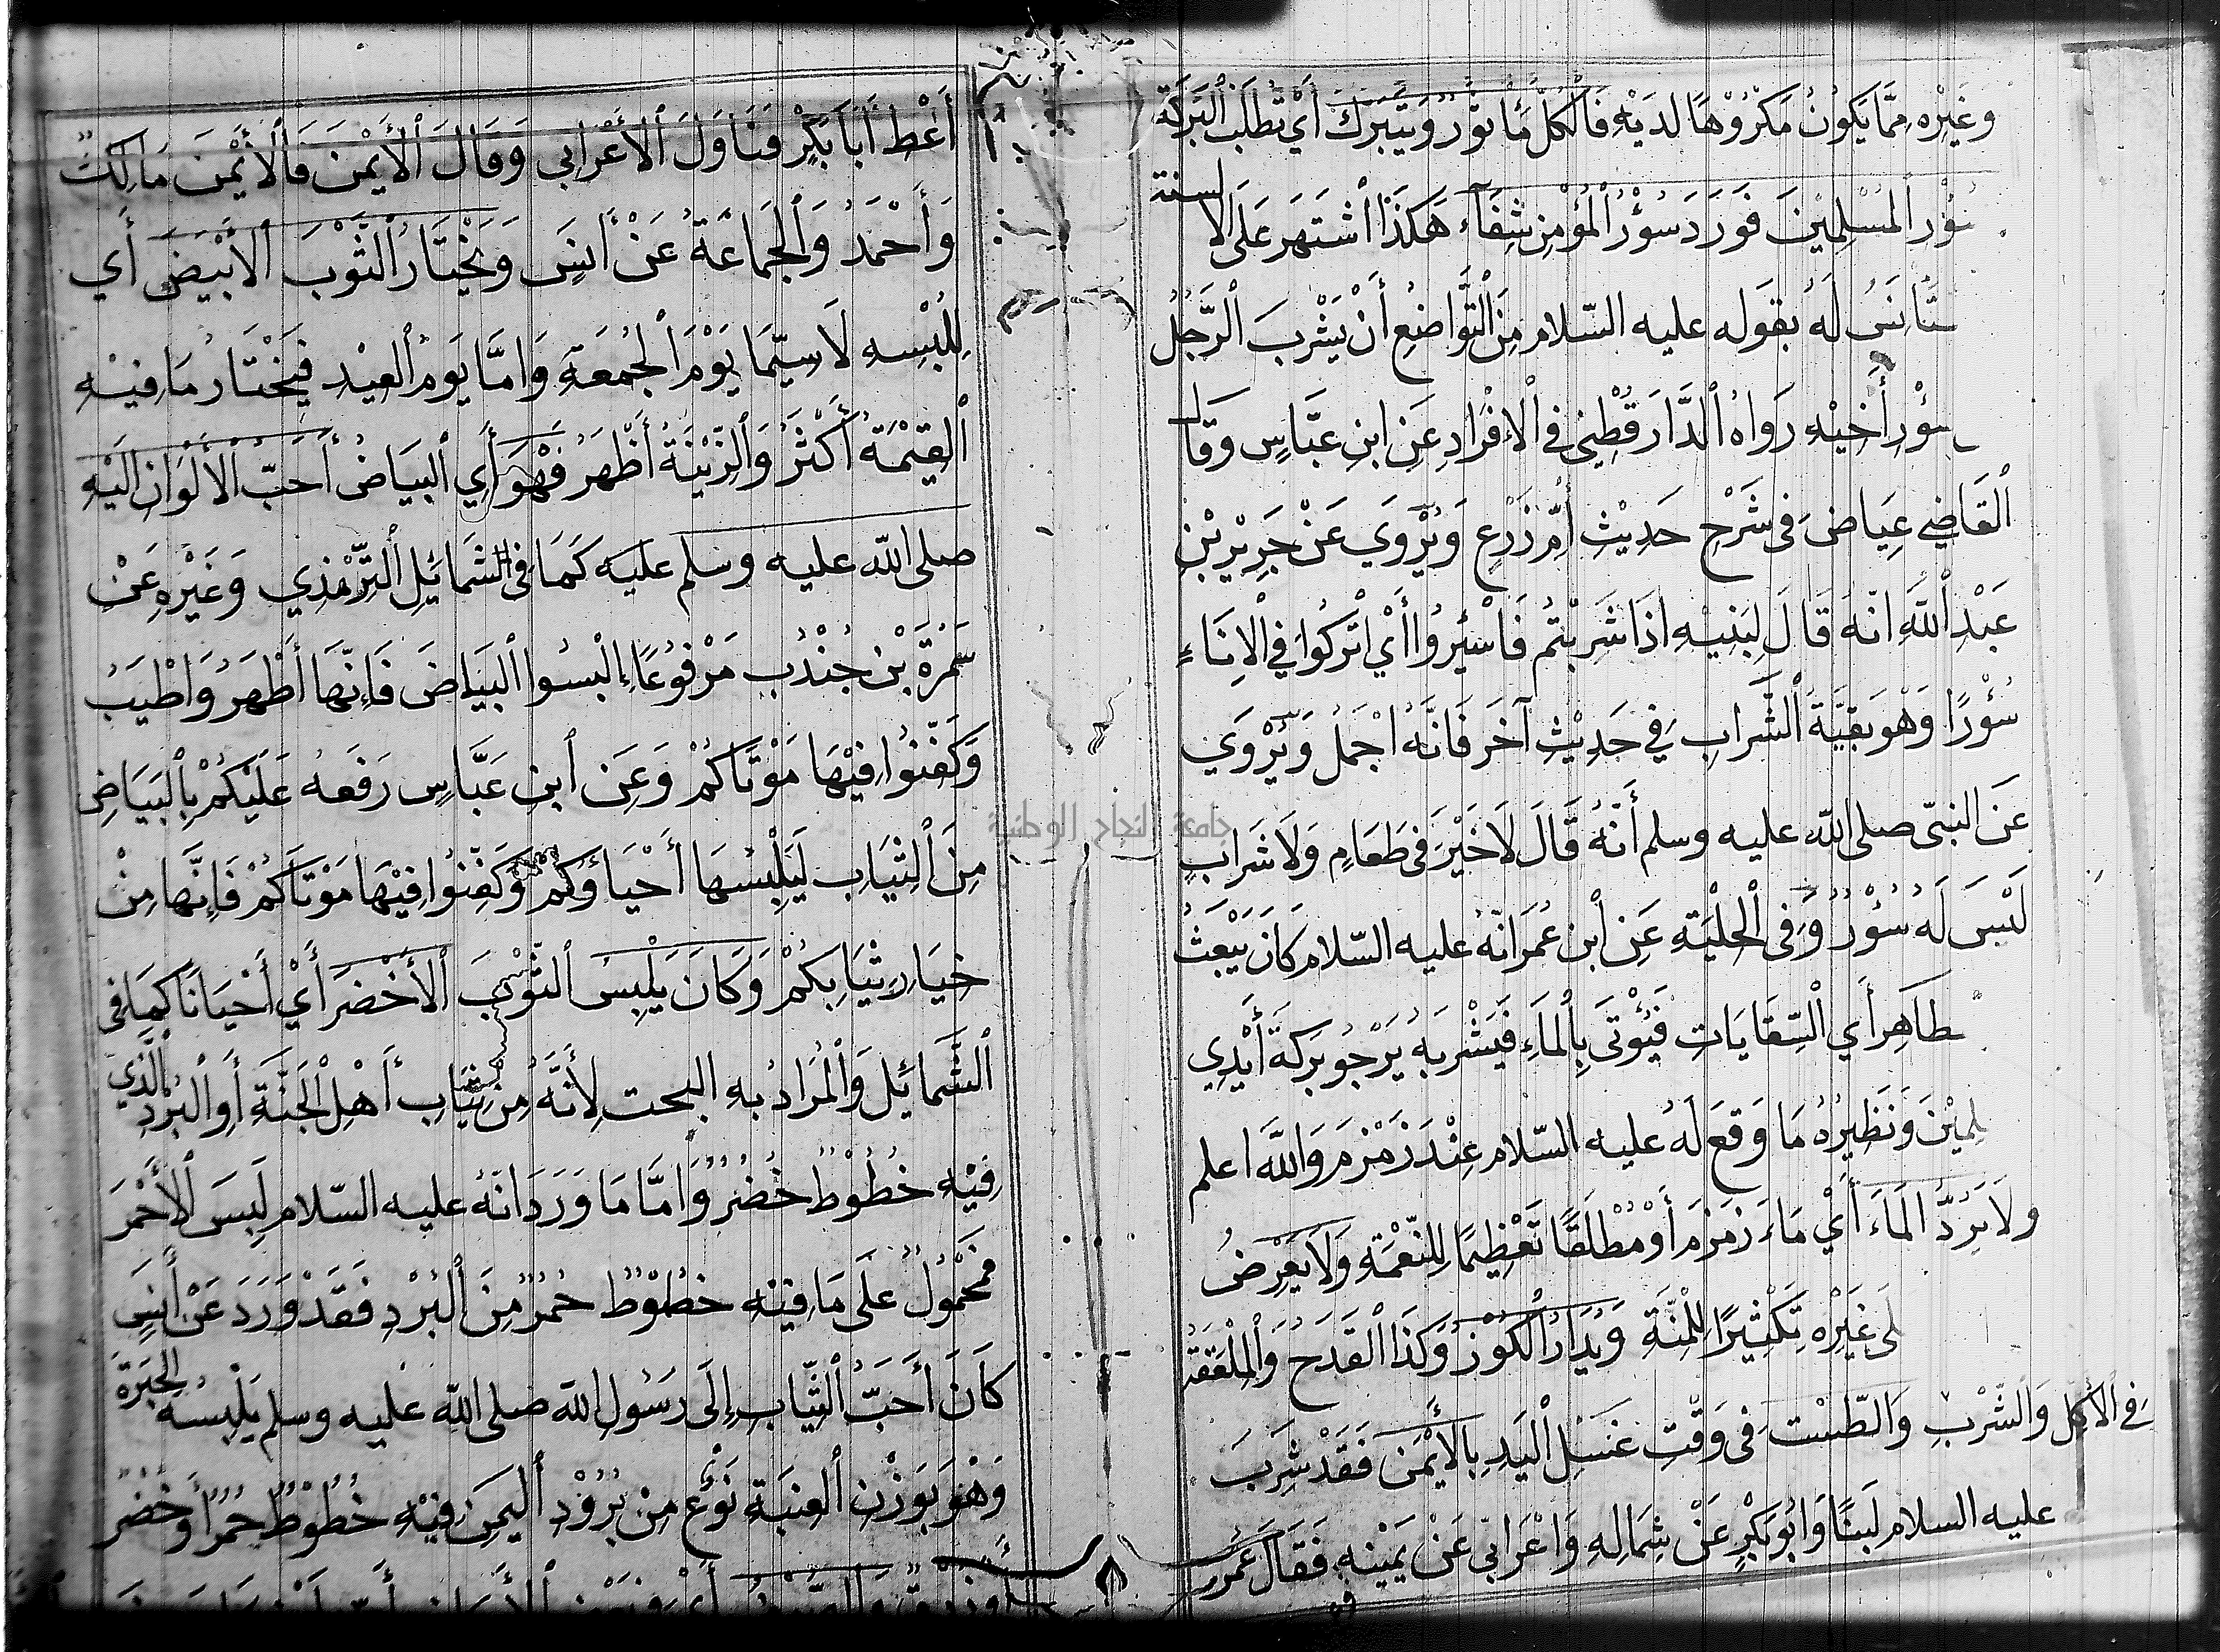 وَغَيْرِهِ مِمَّا يَكُونُ مَكْرُوْهًا لَدَيْهِ فَالْكُلُّ مَأْثُوْرٌ وَيَتَبَرَّكُ أَيْ تُطْلَبُ الْبَرَكَة
سُؤْر المُسْلِمِيْنَ فَوَرَدَ سُؤْرُ الْمُؤْمِنِ شِفَآء هَكَذَا اشْتَهَرَ عَلَى الالسنة
نَسُ لَهُ بقوله عليه السّلام مِنَ التَّوَاضُعِ أَنْ يَشْرَبَ الرَّجُلُ
سُؤْرَ أَخِيْهِ رَوَاهُ الدَّارَقُطْنِي فِي الْأَفْرَادِ عَنِ ابْنِ عَبَّاسٍ وَقَالَ
الْقَاضِي عِيَاضَ فِي شَرْحِ حَدِيْثِ أُمِّ زَرْعٍ وَيُرْوَي عَنْ جَرِيْرِ بْنِ
عَبْدِ اللَّهِ انَّهُ قَالَ لِبَنِيْهِ اذَا شَرِبْتُمْ فَاسْئِرُوا أَيْ اتْرُكُوا فِي الْإِنَاءِ
سُؤْرًا وَهْوَ بَقِيَّةَ الشَّرَابِ فِي حَدِيْثِ آخَرَ فَانَّهُ اجْمَلُ وَيُرْوَي
عَنَ النبيّ صلى الله عليه وسلم أَنَّهُ قَالَ لَا خَيْرَ فِي طَعَامٍ وَلَا شَرَابٍ
لَيْسَ لَهُ سُؤْرٌ وَفِي الْحِلْيَةِ عَنِ ابْنِ عُمَرَ انَّهُ عليه السّلام كَانَ يَبْعَثُ
طَاهِرِ أَي السِّقَايَات فَيُؤْتَى بِالْمَاءِ فَيَشْرَبَهُ يَرْجُو بَرَكَةَ أَيْدِي
لِمِيْنَ وَنَظِيْرُهُ مَا وَقَعَ لَهُ عليه السّلام عِنْدَ زَمْزَمَ وَاللَّهُ اعلم
ولَا يَرُدُّ الْمَاءَ أَيْ مَاءَ زَمْزَمَ أَوْ مُطْلَقًا تَعْظِيْمًا لِلنِّعْمَةِ وَلَا يَعْرِضُ
لَى غَيْرِهِ تَكْثِيْرًا لِلْمِنَّةِ وَيُدَارُ الْكُوْزُ وَكَذَا الْقَدَحُ وَالْمِلْعَقَةُ
فِي الْأَكْلِ وَالشُّرْبِ وَالطَّسْت فِي وَقْتِ غَسْلِ الْيَدِ بِالْأَيْمَنِ فَقَدْ شَرِبَ
عليه السلام لَبَنًا وَابُو بَكْرٍ عَنْ شِمَالِهِ وَاعْرَابيٌّ عَنْ يَمْيْنِهِ فَقَالَ عُمَرُ
أَعْطِ أَبَا بَكْرٍ فَنَاوَلَ الْأَعْرَابي وَقَالَ الْأَيْمَنَ فَالْأَيْمَنَ مَالِكٌ
وَأَحْمَدُ وَالْجَمَاعَةُ عَنْ أَنَسٍ وَيَخْتَارُ الثَّوْبَ الْأَبْيَضَ أَي
لِلُبْسِهِ لَا سِيَّمَا يَوْمَ الْجُمُعَةِ وَامَّا يَوْمُ الْعِيْدِ فَيَخْتَارُ مَا فِيْهِ
الْقِيْمَةُ أَكْثَرُ وَالزِّيْنَةُ أَظْهَرُ فَهْوَ أَي الْبَيَاضُ أَحَبّ الْأَلْوَان الَيْهِ
صلى الله عليه وسلم عليه كَمَا فِي الشَمَائِلِ التِّرْمِذِي وَغَيْرِهِ عَنْ
سَمُرَةَ بْنِ جُنْدُبٍ مَرْفُوْعًا الْبِسُوا الْبَيَاضَ فَإِنَّهَا أَطْهَرُ وَاطْيَبُ
وَكَفِّنُوا فِيْهَا مَوْتَاكُمْ وَعَنِ ابنِ عَبَّاسٍ رَفَعَهُ عَلَيْكُمْ بِالْبَيَاضِ
مِنَ الثِّيَابِ لَيَلْبِسُهَا أَحْيَاؤُكُمْ وَكَفِّنُوا فِيْهَا مَوْتَاكُمْ فَإِنَّهَا مِنْ
خِيَارِ ثِيَابِكُمْ وَكَانَ يَلْبِسُ الثَّوْبَ الْأَخْضَرَ أَيْ أَحْيَانًا كَمَا فِي
الشَّمَائِلِ وَالْمُرَادُ بِهِ البحت لِأَنَّهُ مِنْ ثِيَابِ أَهْلِ الْجَنَّةِ أَوِ الْبُرْدِ الَّذِي
فِيْهِ خُطُوْطٌ خُضْرٌ وَامَّا مَا وَرَدَ انَّهُ عليه السّلام لَبِسَ الْأَحْمَرَ
فَمَحْمُوْلٌ عَلَى مَا فِيْهِ خُطُوْطٌ حُمْرٌ مِنَ الْبُرْدِ فَقَدْ وَرَدَ عَنْ أَنَسٍ
كَانَ أَحَبَّ الثِّيَابِ إِلَى رَسُولِ اللهِ صلى الله عليه وسلم يَلْبِسُهُ الْحِبَرَة
وَهْوَ بِوَزْنِ الْعِنَبَةِ نَوْعٌ مِنْ بُرُوْدِ الْيَمَنِ فِيْهِ خُطُوْطٌ حُمْرٌ أَوْ خُضْرٌ
جامعة النجاح الوطنية